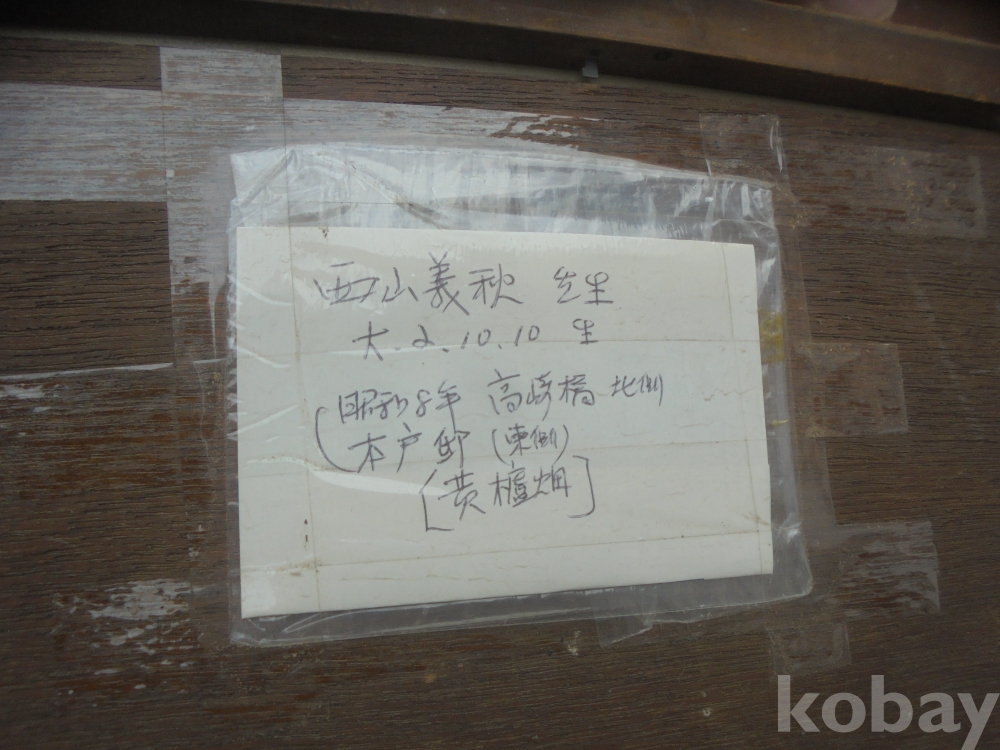 西山義秋 先生
大.2.10.10 生
(昭和8年 高崎橋 北側
本戸邸 (東側)
[黄櫨畑]
kobay